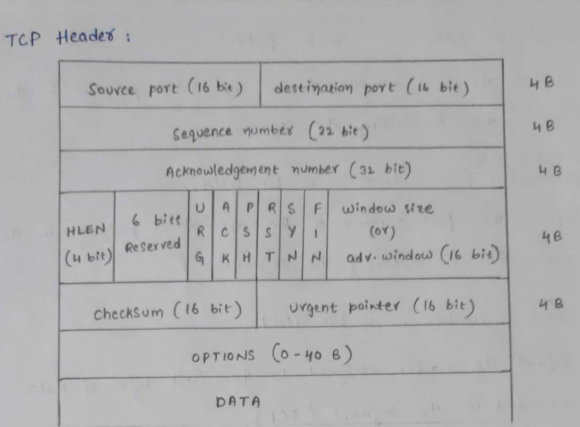 TCP Header :
Source port (16 bit) destination port (16 bit) 4B
Sequence number (32 bit) 4B
Acknowledgement number (32 bit) 4B
HLEN (4 bit) 6 bits Reserved URG ACK PSH RST SYN FIN window size (or) adv. window (16 bit) 4B
checksum (16 bit) urgent pointer (16 bit) 4B
OPTIONS (0-40 B)
DATA